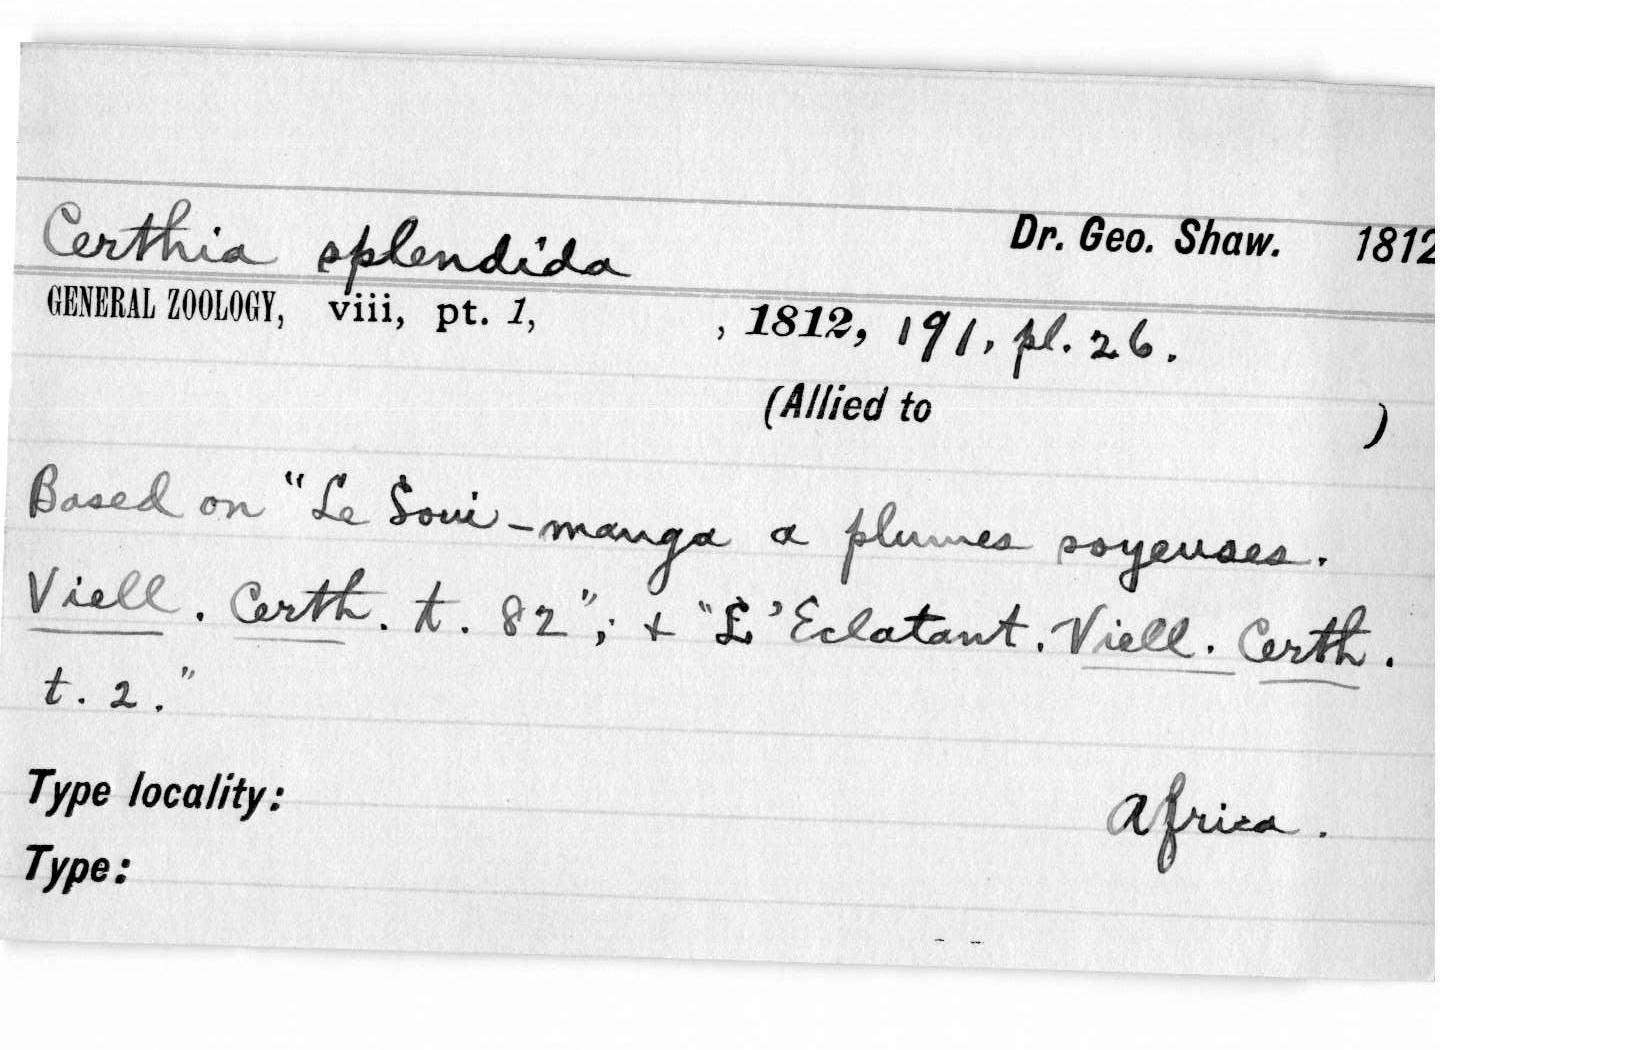 Certhia splendida Dr. Geo. Shaw. 1812
GENERAL ZOOLOGY, viii, pt. 1, , 1812, 191, pl. 26.
(Allied to )
Based on "Le Soui-manga a plumes soyeuses.
Viell. Certh. t. 82"; + "L'Eclatant. Viell. Certh.
t. 2."
Type locality: Africa.
Type: